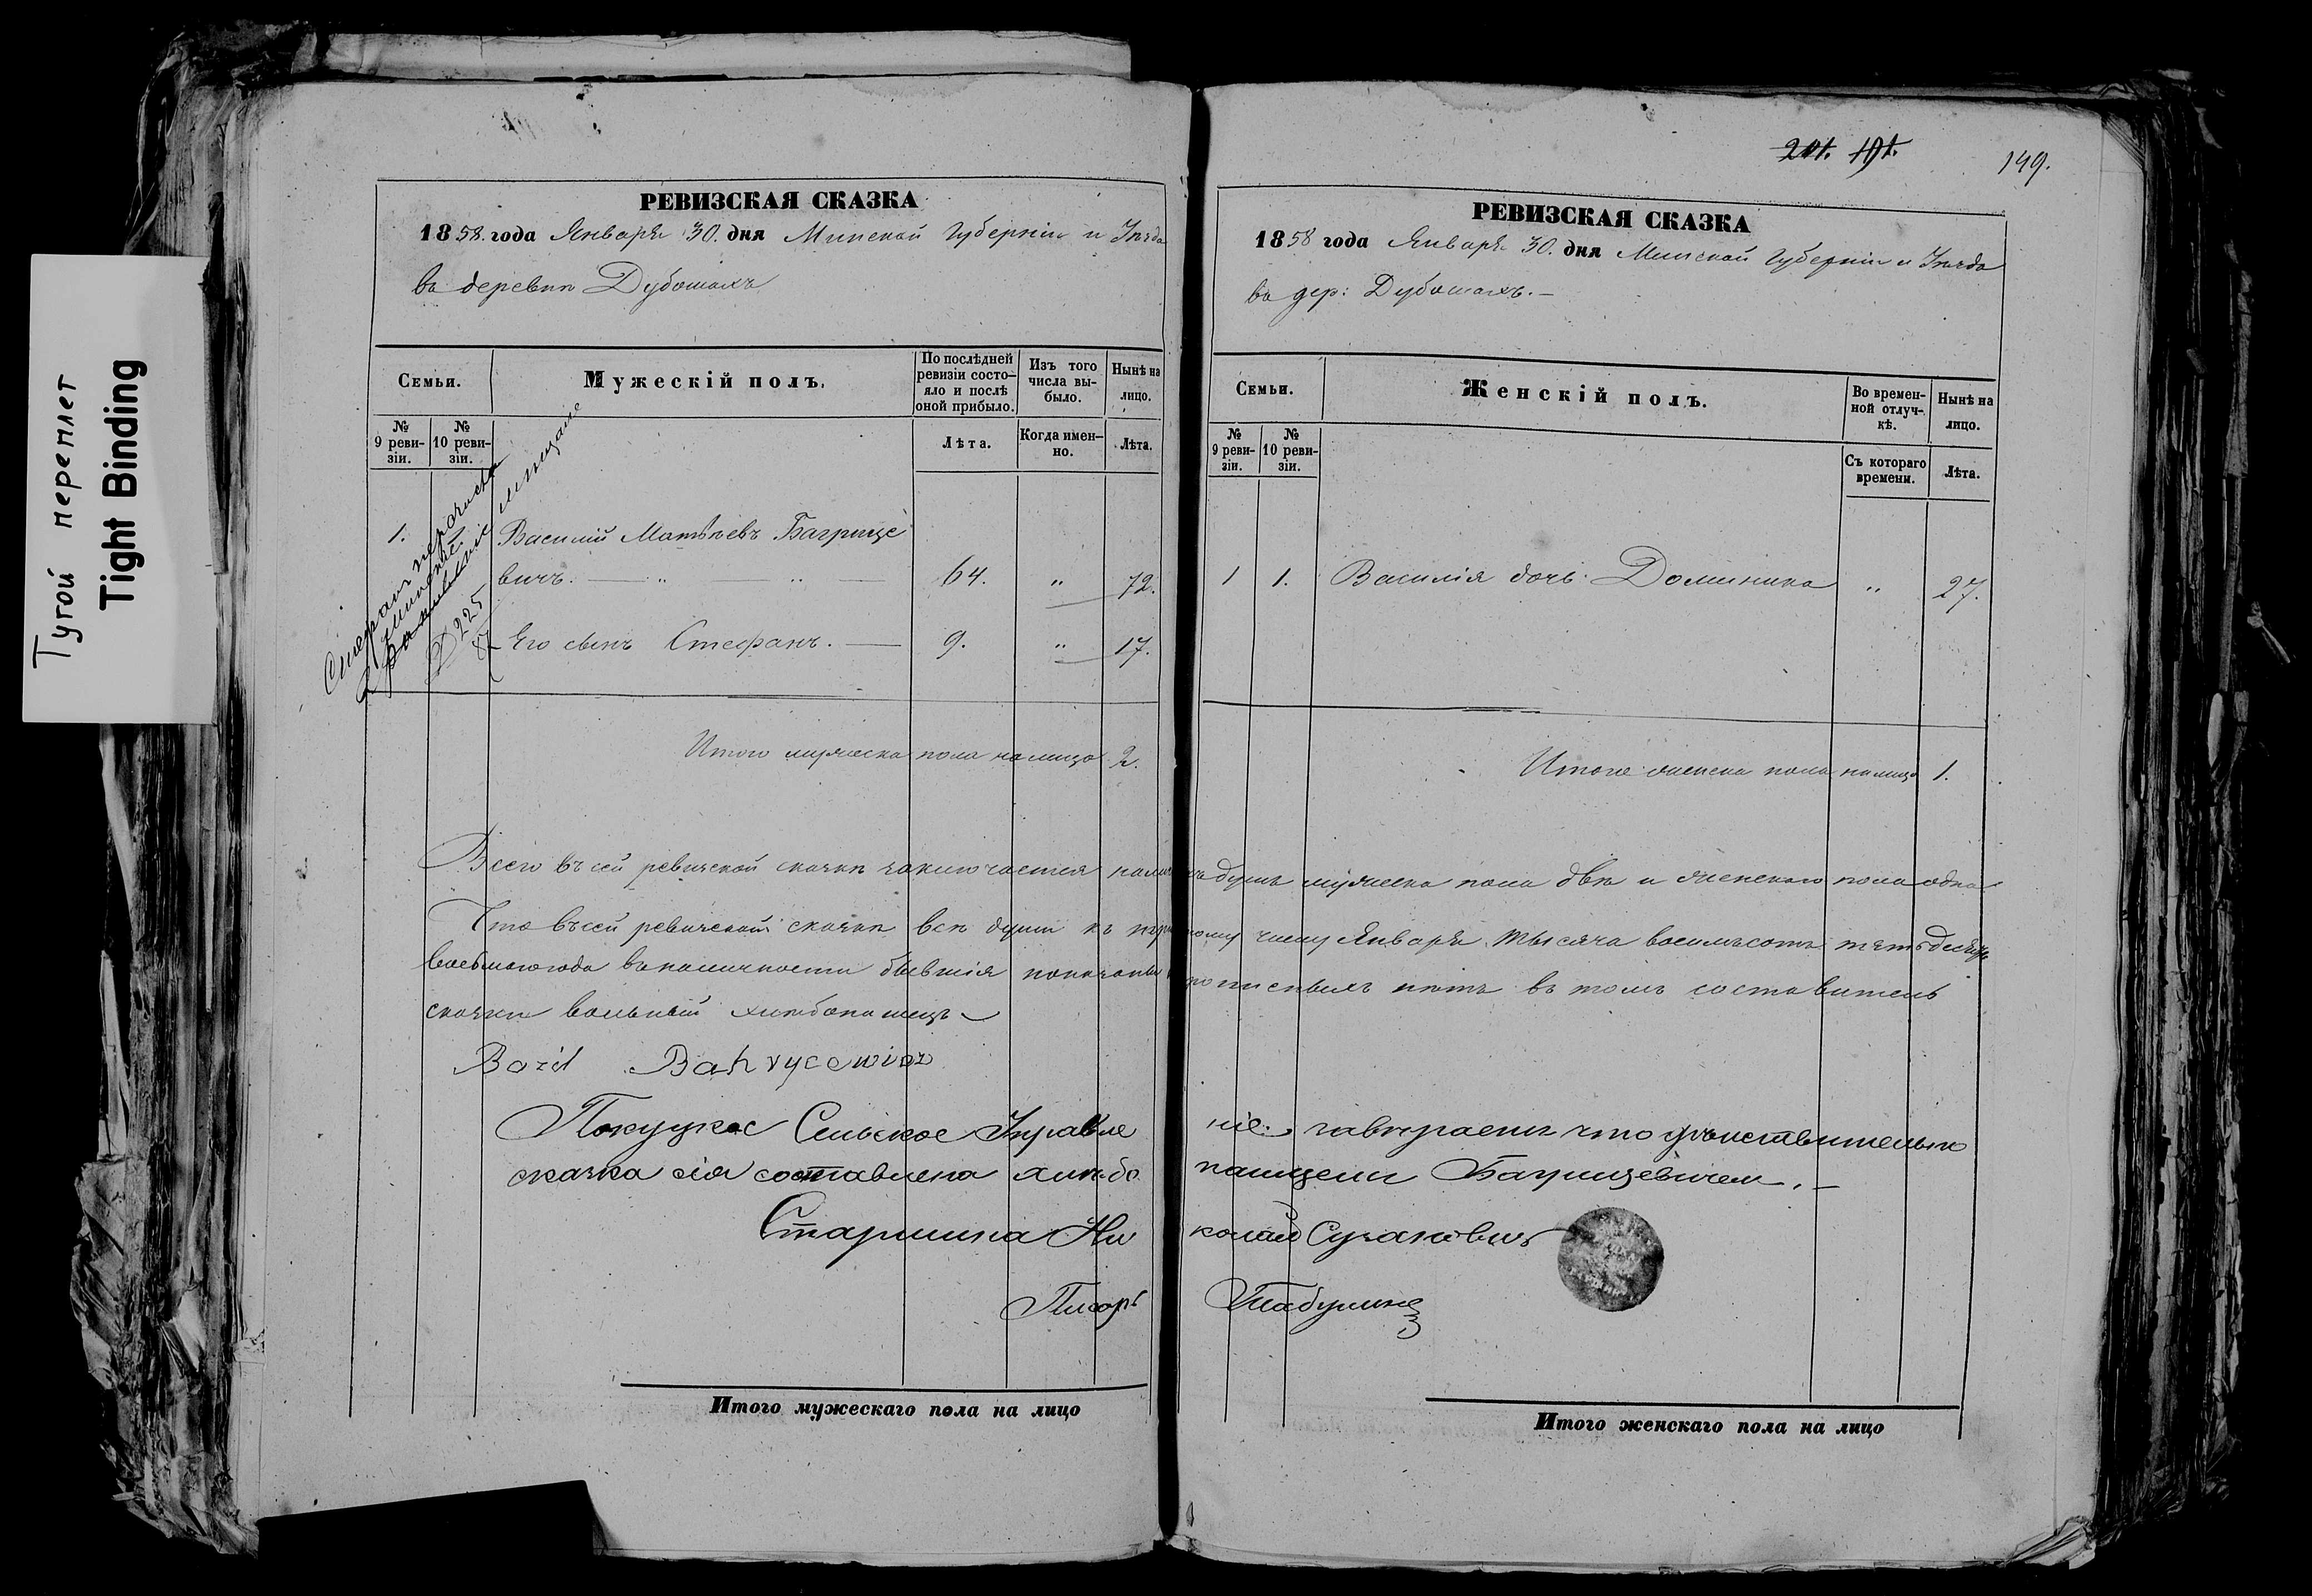 Тугой переплет
Tight Binding
РЕВИЗСКАЯ СКАЗКА
1858. года Января 30. дня Минской Губерніи и Уѣзда
въ деревнѣ Дубошахъ
Семьи.
Мужескій полъ.
По послѣдней
ревизіи состо-
яло и послѣ
оной прибыло.
Изъ того
числа вы-
было.
Нынѣ на
лицо.
№
9 реви-
зіи.
№
10 реви-
зіи.
Лѣта.
Когда имен-
но.
Лѣта.
Стефан
мещане
225
1. Василій Матѣевъ Багрице
вичъ. — " " — 64. " 72.
Его сынъ Стефанъ. — 9. " 17.
Итого мужеска пола на лицо 2.
201. 191. 149.
РЕВИЗСКАЯ СКАЗКА
1858 года Января 30. дня Минской Губерніи и Уѣзда
въ дер: Дубошахъ. —
Семьи.
Женскій полъ.
Во времен-
ной отлуч-
кѣ.
Нынѣ на
лицо.
№
9 реви-
зіи.
№
10 реви-
зіи.
Съ котораго
времени.
Лѣта.
1 1. Василія дочь Доминика " 27.
Итого женска пола на лицо 1.
Всего въ сей ревизской сказкѣ заключается душъ мужеска пола двѣ и женскаго пола одна
Что въ сей ревизской сказкѣ всѣ души къ первому числу Января тысяча восемьсотъ пятьдесятъ
восьмаго года въ наличности бывшія показаны и прописныхъ нѣтъ въ томъ составитель
сказки вольный хлѣбопашецъ
Bazil Bahrycewicz
Сельское Управленіе завѣряетъ что дѣйствительно
сказка сія составлена хлѣбопашцемъ Багрицевичемъ. —
Старшина Николай
Писарь
Итого мужескаго пола на лицо
Итого женскаго пола на лицо